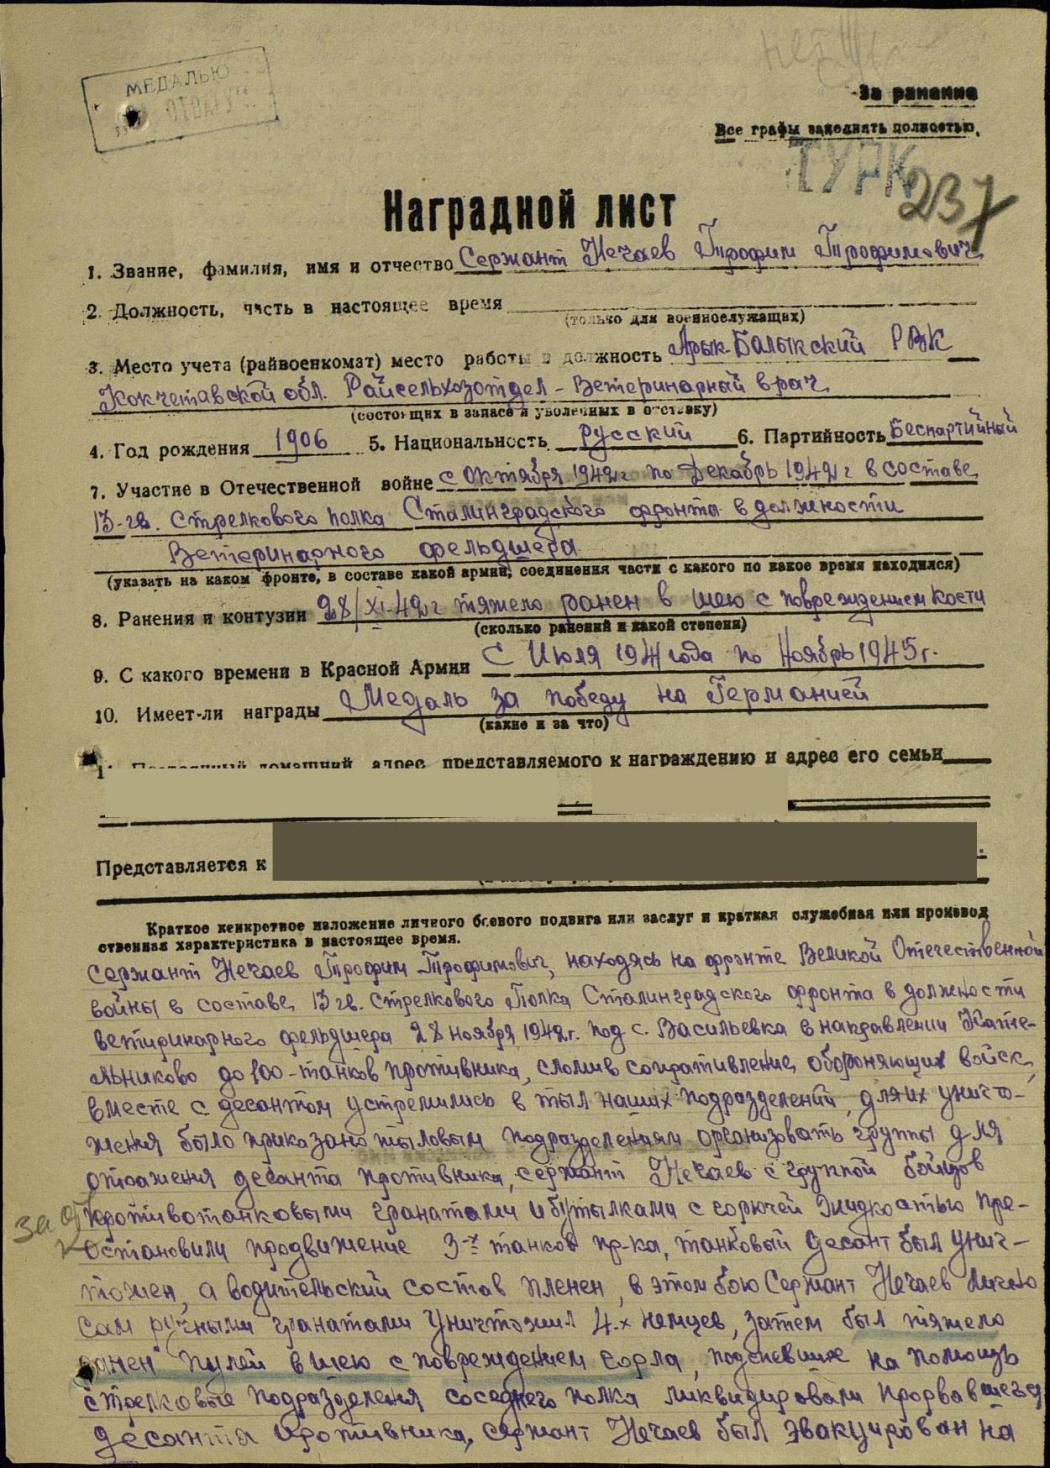 МЕДАЛЬЮ
За ранение
Все графы заполнять полностью.
ТУРК
237
Наградной лист
1. Звание, фамилия, имя и отчество Сержант Нечаев Трофим Трофимович
2. Должность, часть в настоящее время
(только для военнослужащих)
3. Место учета (райвоенкомат) место работы и должность Арык-Балыкский РВК
Кокчетавской обл. Райсельхозотдел - Ветеринарный врач
(состоящих в запасе и уволенных в отставку)
4. Год рождения 1906 5. Национальность русский 6. Партийность Беспартийный
7. Участие в Отечественной войне с октября 1942г по Декабрь 1942г в составе
13-гв. Стрелкового полка Сталинградского фронта в должности
Ветеринарного фельдшера
(указать на каком фронте, в составе какой армии, соединения части с какого по какое время находился)
8. Ранения и контузии 28/XI-42г тяжело ранен в шею с повреждением кости
(сколько ранений и какой степени)
9. С какого времени в Красной Армии С Июля 1941 года по Ноябрь 1945г.
10. Имеет-ли награды Медаль за победу на Германией
(какие и за что)
домашний адрес представляемого к награждению и адрес его семьи
Представляется к
Краткое конкретное изложение личного боевого подвига или заслуг и краткая служебная или производ
ственная характеристика в настоящее время.
Сержант Нечаев Трофим Трофимович, находясь на фронте Великой Отечественной
войны в составе 13 гв. стрелкового Полка Сталинградского фронта в должности
ветиринарного фельдшера 28 ноября 1942г. под с. Васильевка в направлении Коте-
льниково до 100-танков противника, сломив сопративление обороняющих войск,
вместе с десантом устремились в тыл наших подразделений, для их уничто-
жения было приказано тыловым подразделениям организовать группы для
отражения десанта противника, сержант Нечаев с группой бойцов
противотанковыми гранатами и бутылками с горючей жидкостью пре-
остановили продвижение 3-х танков пр-ка, танковый десант был унич-
тожен, а водительский состав пленен, в этом бою Сержант Нечаев лично
сам ручными гранатами уничтожил 4-х немцев, затем был тяжело
ранен пулей в шею с повреждением горла, подспевшие на помощь
стрелковые подразделения соседнего полка ликвидировали прорвавшегося
десанта противника, сержант Нечаев был эвакуирован на